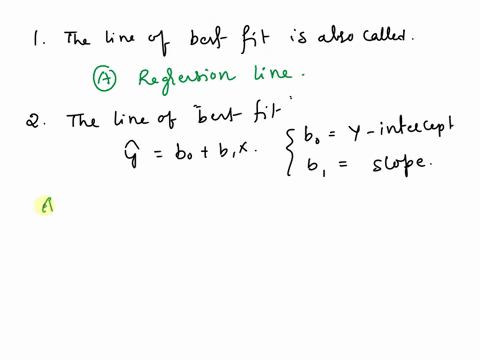 1. The line of best fit is also called.
(A) Regression line.
2. The line of "best fit"
ŷ = b₀ + b₁x. { b₀ = Y-intercept
b₁ = slope.
A